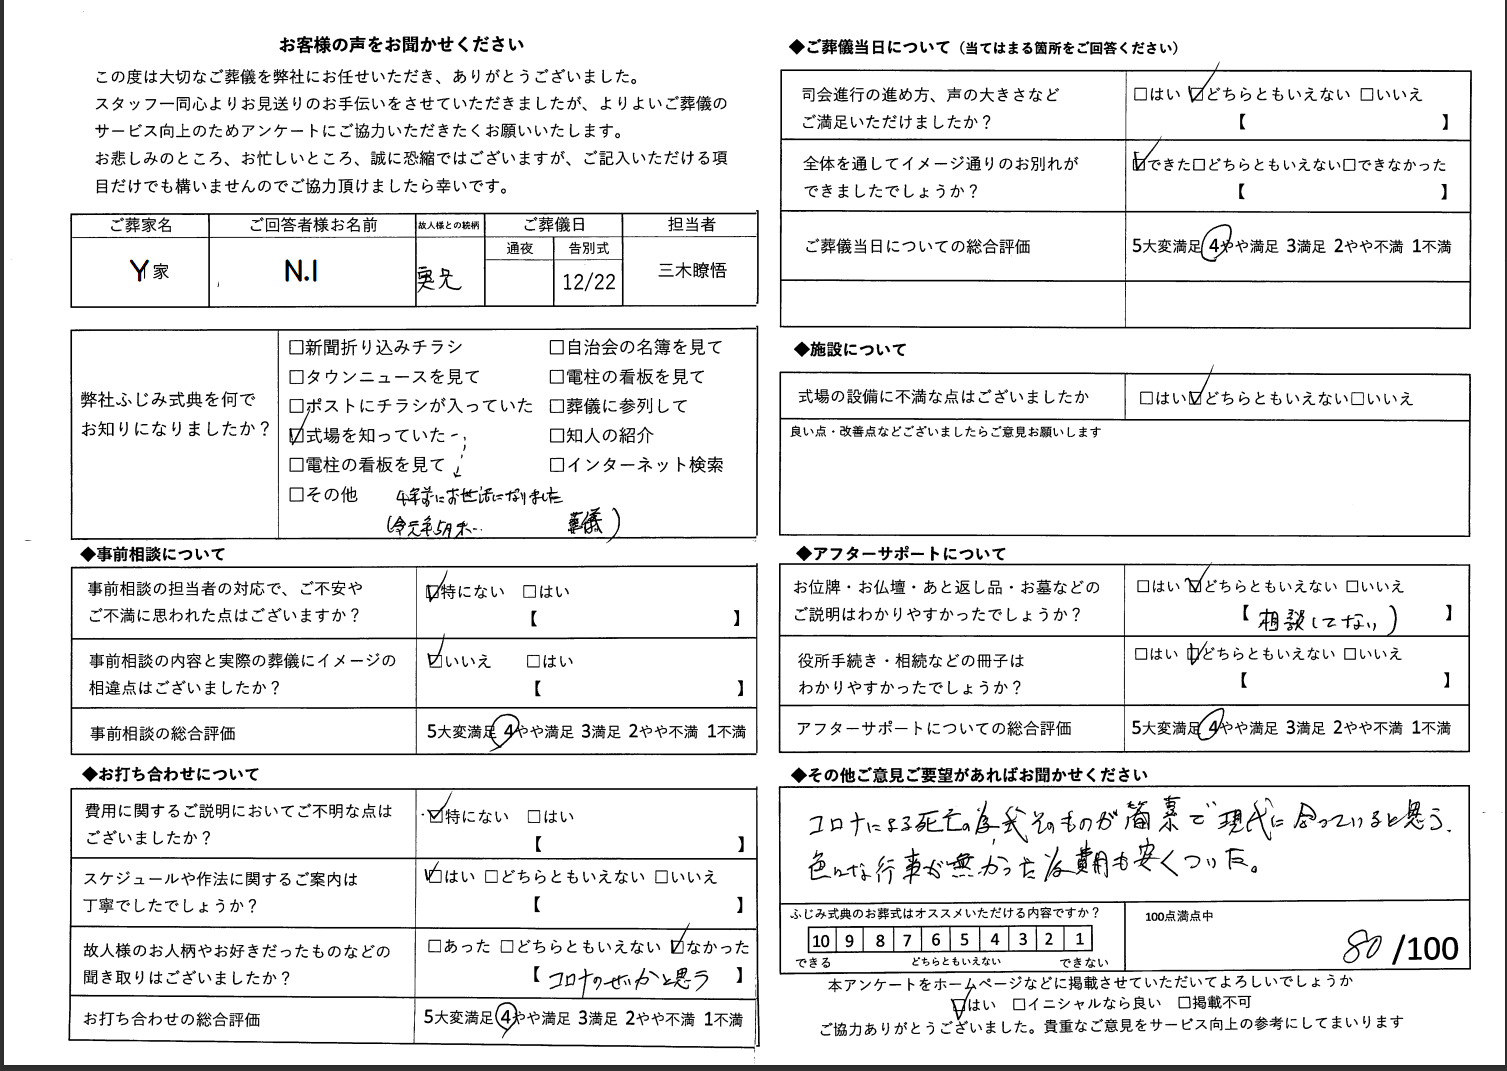 お客様の声をお聞かせください
この度は大切なご葬儀を弊社にお任せいただき、ありがとうございました。
スタッフ一同心よりお見送りのお手伝いをさせていただきましたが、よりよいご葬儀の
サービス向上のためアンケートにご協力いただきたくお願いいたします。
お悲しみのところ、お忙しいところ、誠に恐縮ではございますが、ご記入いただける項
目だけでも構いませんのでご協力頂けましたら幸いです。
ご葬家名 ご回答者様お名前 故人様との続柄 ご葬儀日 担当者
通夜 告別式
Y家 N.I 実兄 12/22 三木瞭悟
弊社ふじみ式典を何で
お知りになりましたか？
□新聞折り込みチラシ □自治会の名簿を見て
□タウンニュースを見て □電柱の看板を見て
□ポストにチラシが入っていた □葬儀に参列して
☑式場を知っていた □知人の紹介
□電柱の看板を見て □インターネット検索
□その他 4年前にお世話になりました
(令元年5月末 葬儀)
◆事前相談について
事前相談の担当者の対応で、ご不安や
ご不満に思われた点はございますか？
☑特にない □はい
【 】
事前相談の内容と実際の葬儀にイメージの
相違点はございましたか？
☑いいえ □はい
【 】
事前相談の総合評価 5大変満足 4やや満足 3満足 2やや不満 1不満
◆お打ち合わせについて
費用に関するご説明においてご不明な点は
ございましたか？
☑特にない □はい
【 】
スケジュールや作法に関するご案内は
丁寧でしたでしょうか？
☑はい □どちらともいえない □いいえ
【 】
故人様のお人柄やお好きだったものなどの
聞き取りはございましたか？
□あった □どちらともいえない ☑なかった
【 コロナのせいかと思う 】
お打ち合わせの総合評価 5大変満足 4やや満足 3満足 2やや不満 1不満
◆ご葬儀当日について（当てはまる箇所をご回答ください）
司会進行の進め方、声の大きさなど
ご満足いただけましたか？
□はい ☑どちらともいえない □いいえ
【 】
全体を通してイメージ通りのお別れが
できましたでしょうか？
☑できた□どちらともいえない□できなかった
【 】
ご葬儀当日についての総合評価 5大変満足 4やや満足 3満足 2やや不満 1不満
◆施設について
式場の設備に不満な点はございましたか □はい☑どちらともいえない□いいえ
良い点・改善点などございましたらご意見お願いします
◆アフターサポートについて
お位牌・お仏壇・あと返し品・お墓などの
ご説明はわかりやすかったでしょうか？
□はい ☑どちらともいえない □いいえ
【 相談してない) 】
役所手続き・相続などの冊子は
わかりやすかったでしょうか？
□はい ☑どちらともいえない □いいえ
【 】
アフターサポートについての総合評価 5大変満足 4やや満足 3満足 2やや不満 1不満
◆その他ご意見ご要望があればお聞かせください
コロナによる死亡の為式そのものが簡素で現代に合っていると思う.
色んな行事が無かった為費用も安くついた。
ふじみ式典のお葬式はオススメいただける内容ですか？
10 9 8 7 6 5 4 3 2 1
できる どちらともいえない できない
100点満点中
80/100
本アンケートをホームページなどに掲載させていただいてよろしいでしょうか
☑はい □イニシャルなら良い □掲載不可
ご協力ありがとうございました。貴重なご意見をサービス向上の参考にしてまいります